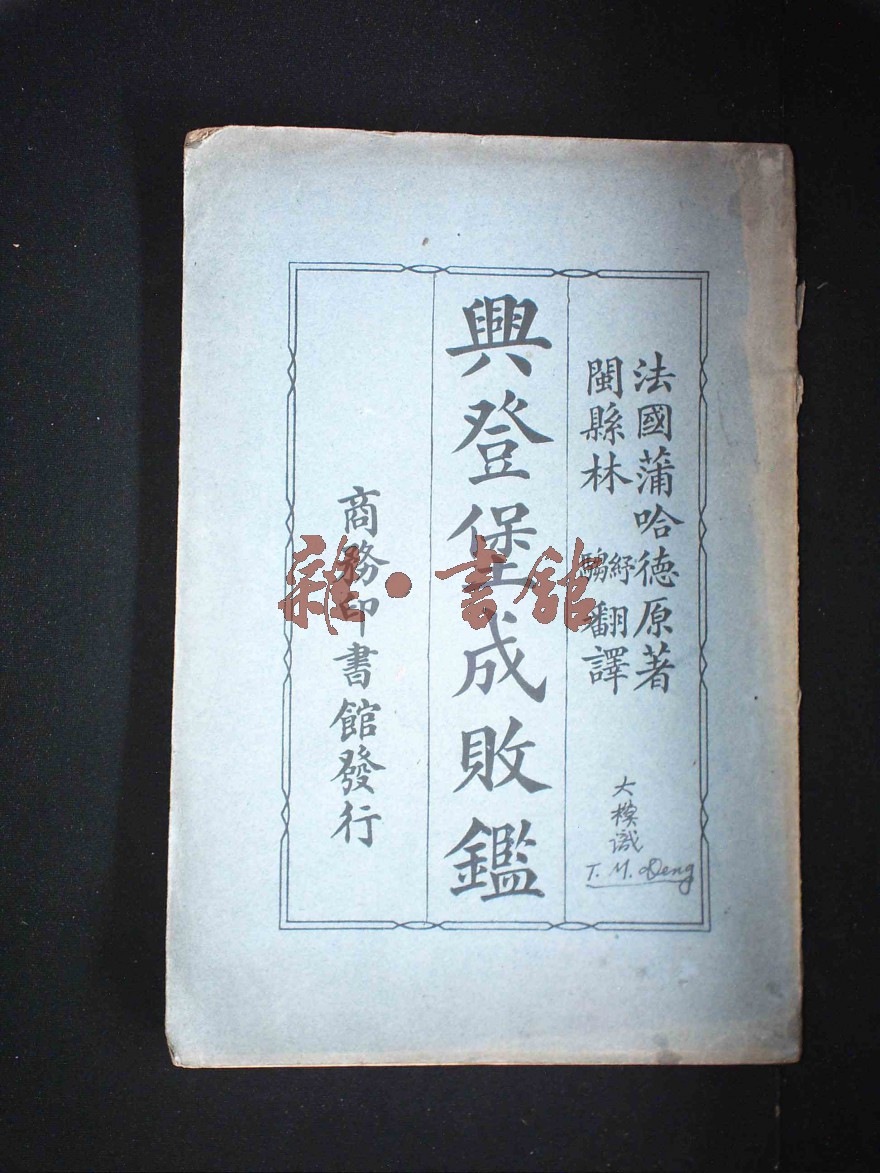 法國蒲哈德原著
閩縣林紓翻譯
興登堡成敗鑑
商務印書館發行
大模識
T. M. Deng
雜·書館